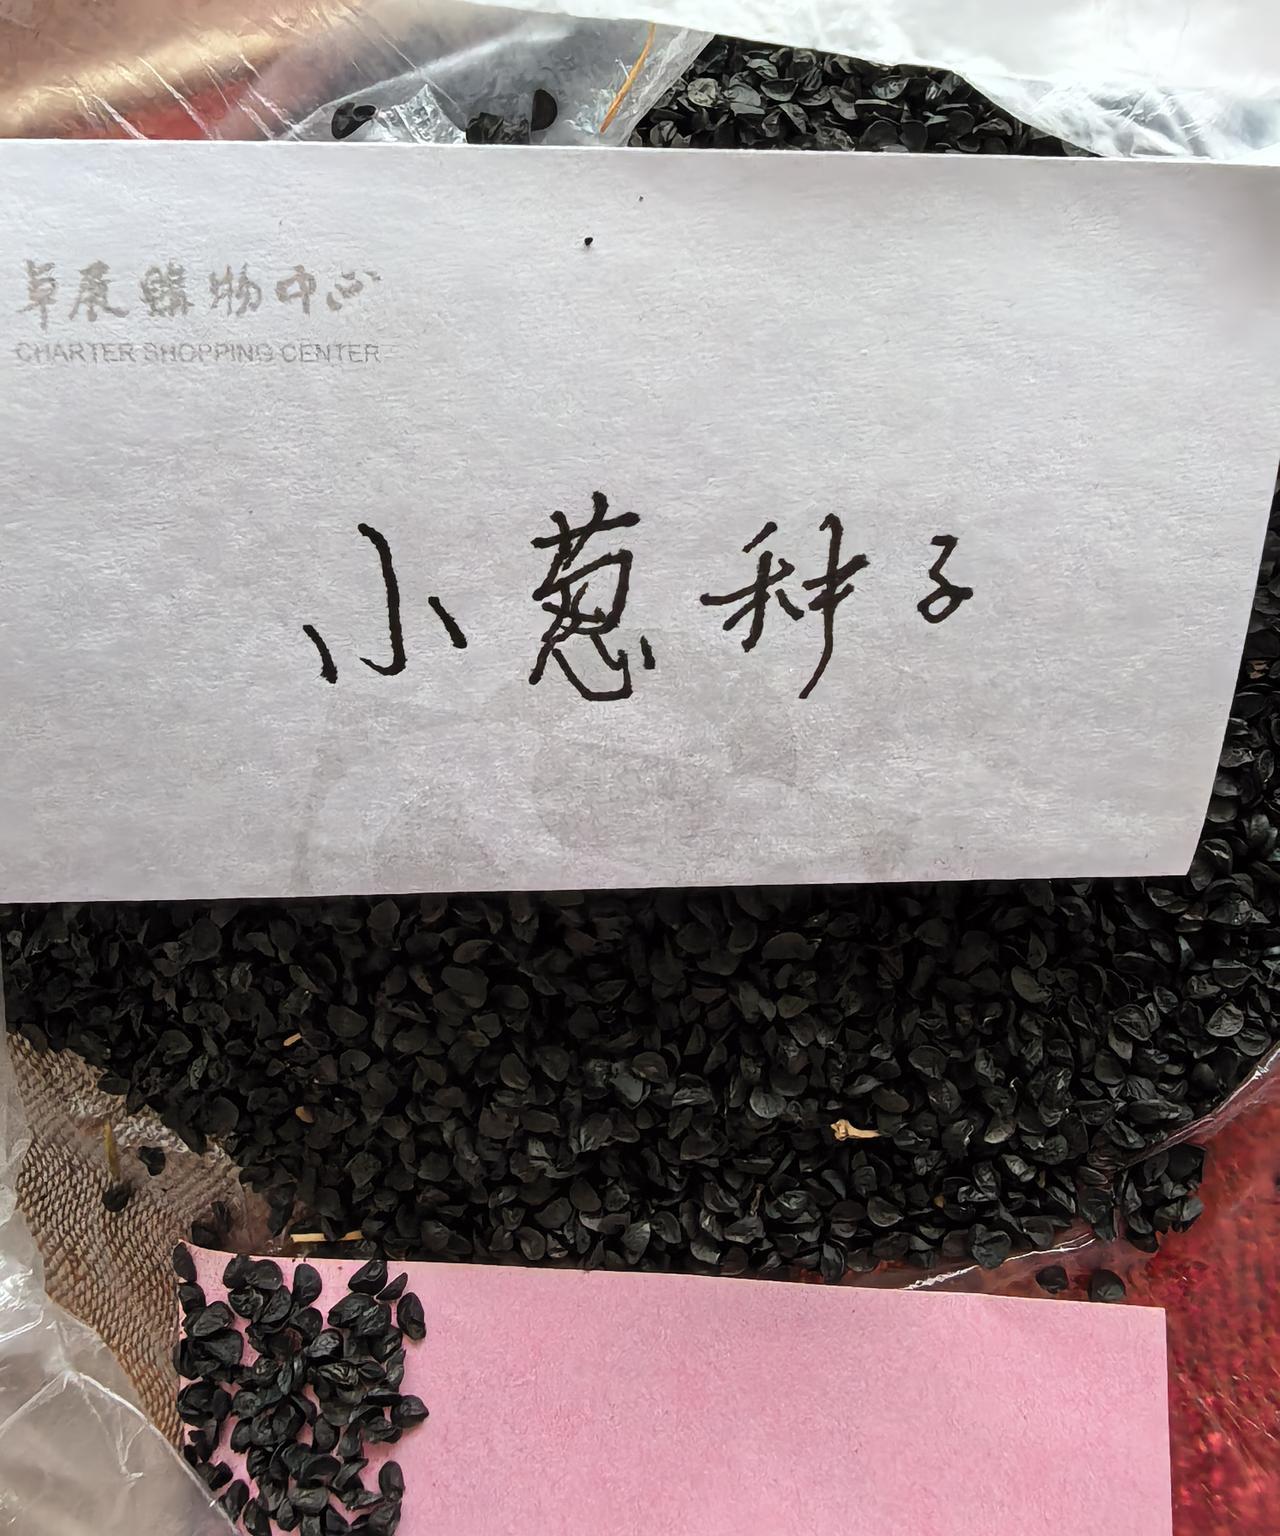 卓展購物中心
CHARTER SHOPPING CENTER
小葱种子